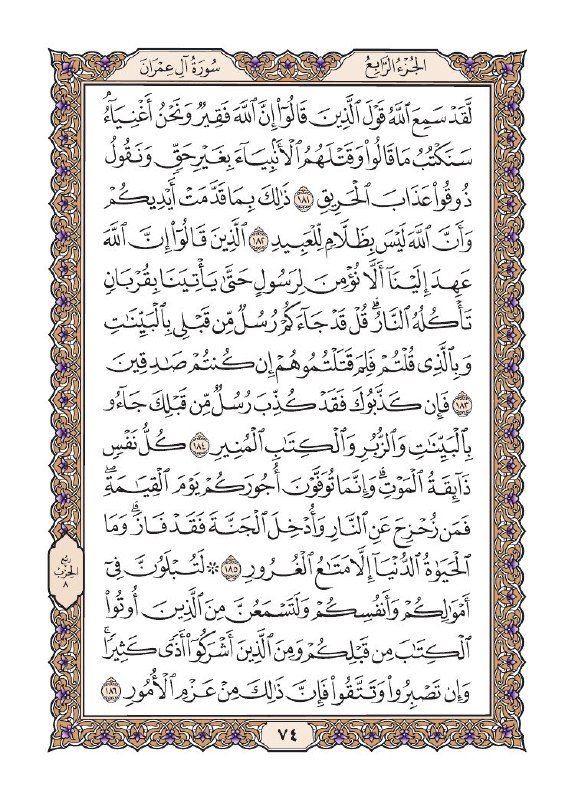 الجزء الرابع
سورة آل عمران
لَّقَدْ سَمِعَ اللَّهُ قَوْلَ الَّذِينَ قَالُوٓا۟ إِنَّ اللَّهَ فَقِيرٌ وَنَحْنُ أَغْنِيَآءُ
سَنَكْتُبُ مَا قَالُوا۟ وَقَتْلَهُمُ الْأَنۢبِيَآءَ بِغَيْرِ حَقٍّ وَنَقُولُ
ذُوقُوا۟ عَذَابَ الْحَرِيقِ ١٨١ ذَٰلِكَ بِمَا قَدَّمَتْ أَيْدِيكُمْ
وَأَنَّ اللَّهَ لَيْسَ بِظَلَّامٍ لِّلْعَبِيدِ ١٨٢ الَّذِينَ قَالُوٓا۟ إِنَّ اللَّهَ
عَهِدَ إِلَيْنَآ أَلَّا نُؤْمِنَ لِرَسُولٍ حَتَّىٰ يَأْتِيَنَا بِقُرْبَانٍ
تَأْكُلُهُ النَّارُ ۗ قُلْ قَدْ جَآءَكُمْ رُسُلٌ مِّن قَبْلِى بِالْبَيِّنَٰتِ
وَبِالَّذِى قُلْتُمْ فَلِمَ قَتَلْتُمُوهُمْ إِن كُنتُمْ صَٰدِقِينَ
١٨٣ فَإِن كَذَّبُوكَ فَقَدْ كُذِّبَ رُسُلٌ مِّن قَبْلِكَ جَآءُو
بِالْبَيِّنَٰتِ وَالزُّبُرِ وَالْكِتَٰبِ الْمُنِيرِ ١٨٤ كُلُّ نَفْسٍ
ذَآئِقَةُ الْمَوْتِ ۗ وَإِنَّمَا تُوَفَّوْنَ أُجُورَكُمْ يَوْمَ الْقِيَٰمَةِ ۖ
فَمَن زُحْزِحَ عَنِ النَّارِ وَأُدْخِلَ الْجَنَّةَ فَقَدْ فَازَ ۗ وَمَا
الْحَيَوٰةُ الدُّنْيَآ إِلَّا مَتَٰعُ الْغُرُورِ ١٨٥ ۞ لَتُبْلَوُنَّ فِىٓ
أَمْوَٰلِكُمْ وَأَنفُسِكُمْ وَلَتَسْمَعُنَّ مِنَ الَّذِينَ أُوتُوا۟
الْكِتَٰبَ مِن قَبْلِكُمْ وَمِنَ الَّذِينَ أَشْرَكُوٓا۟ أَذًى كَثِيرًا ۚ
وَإِن تَصْبِرُوا۟ وَتَتَّقُوا۟ فَإِنَّ ذَٰلِكَ مِنْ عَزْمِ الْأُمُورِ ١٨٦
ربع
الحزب
٨
٧٤